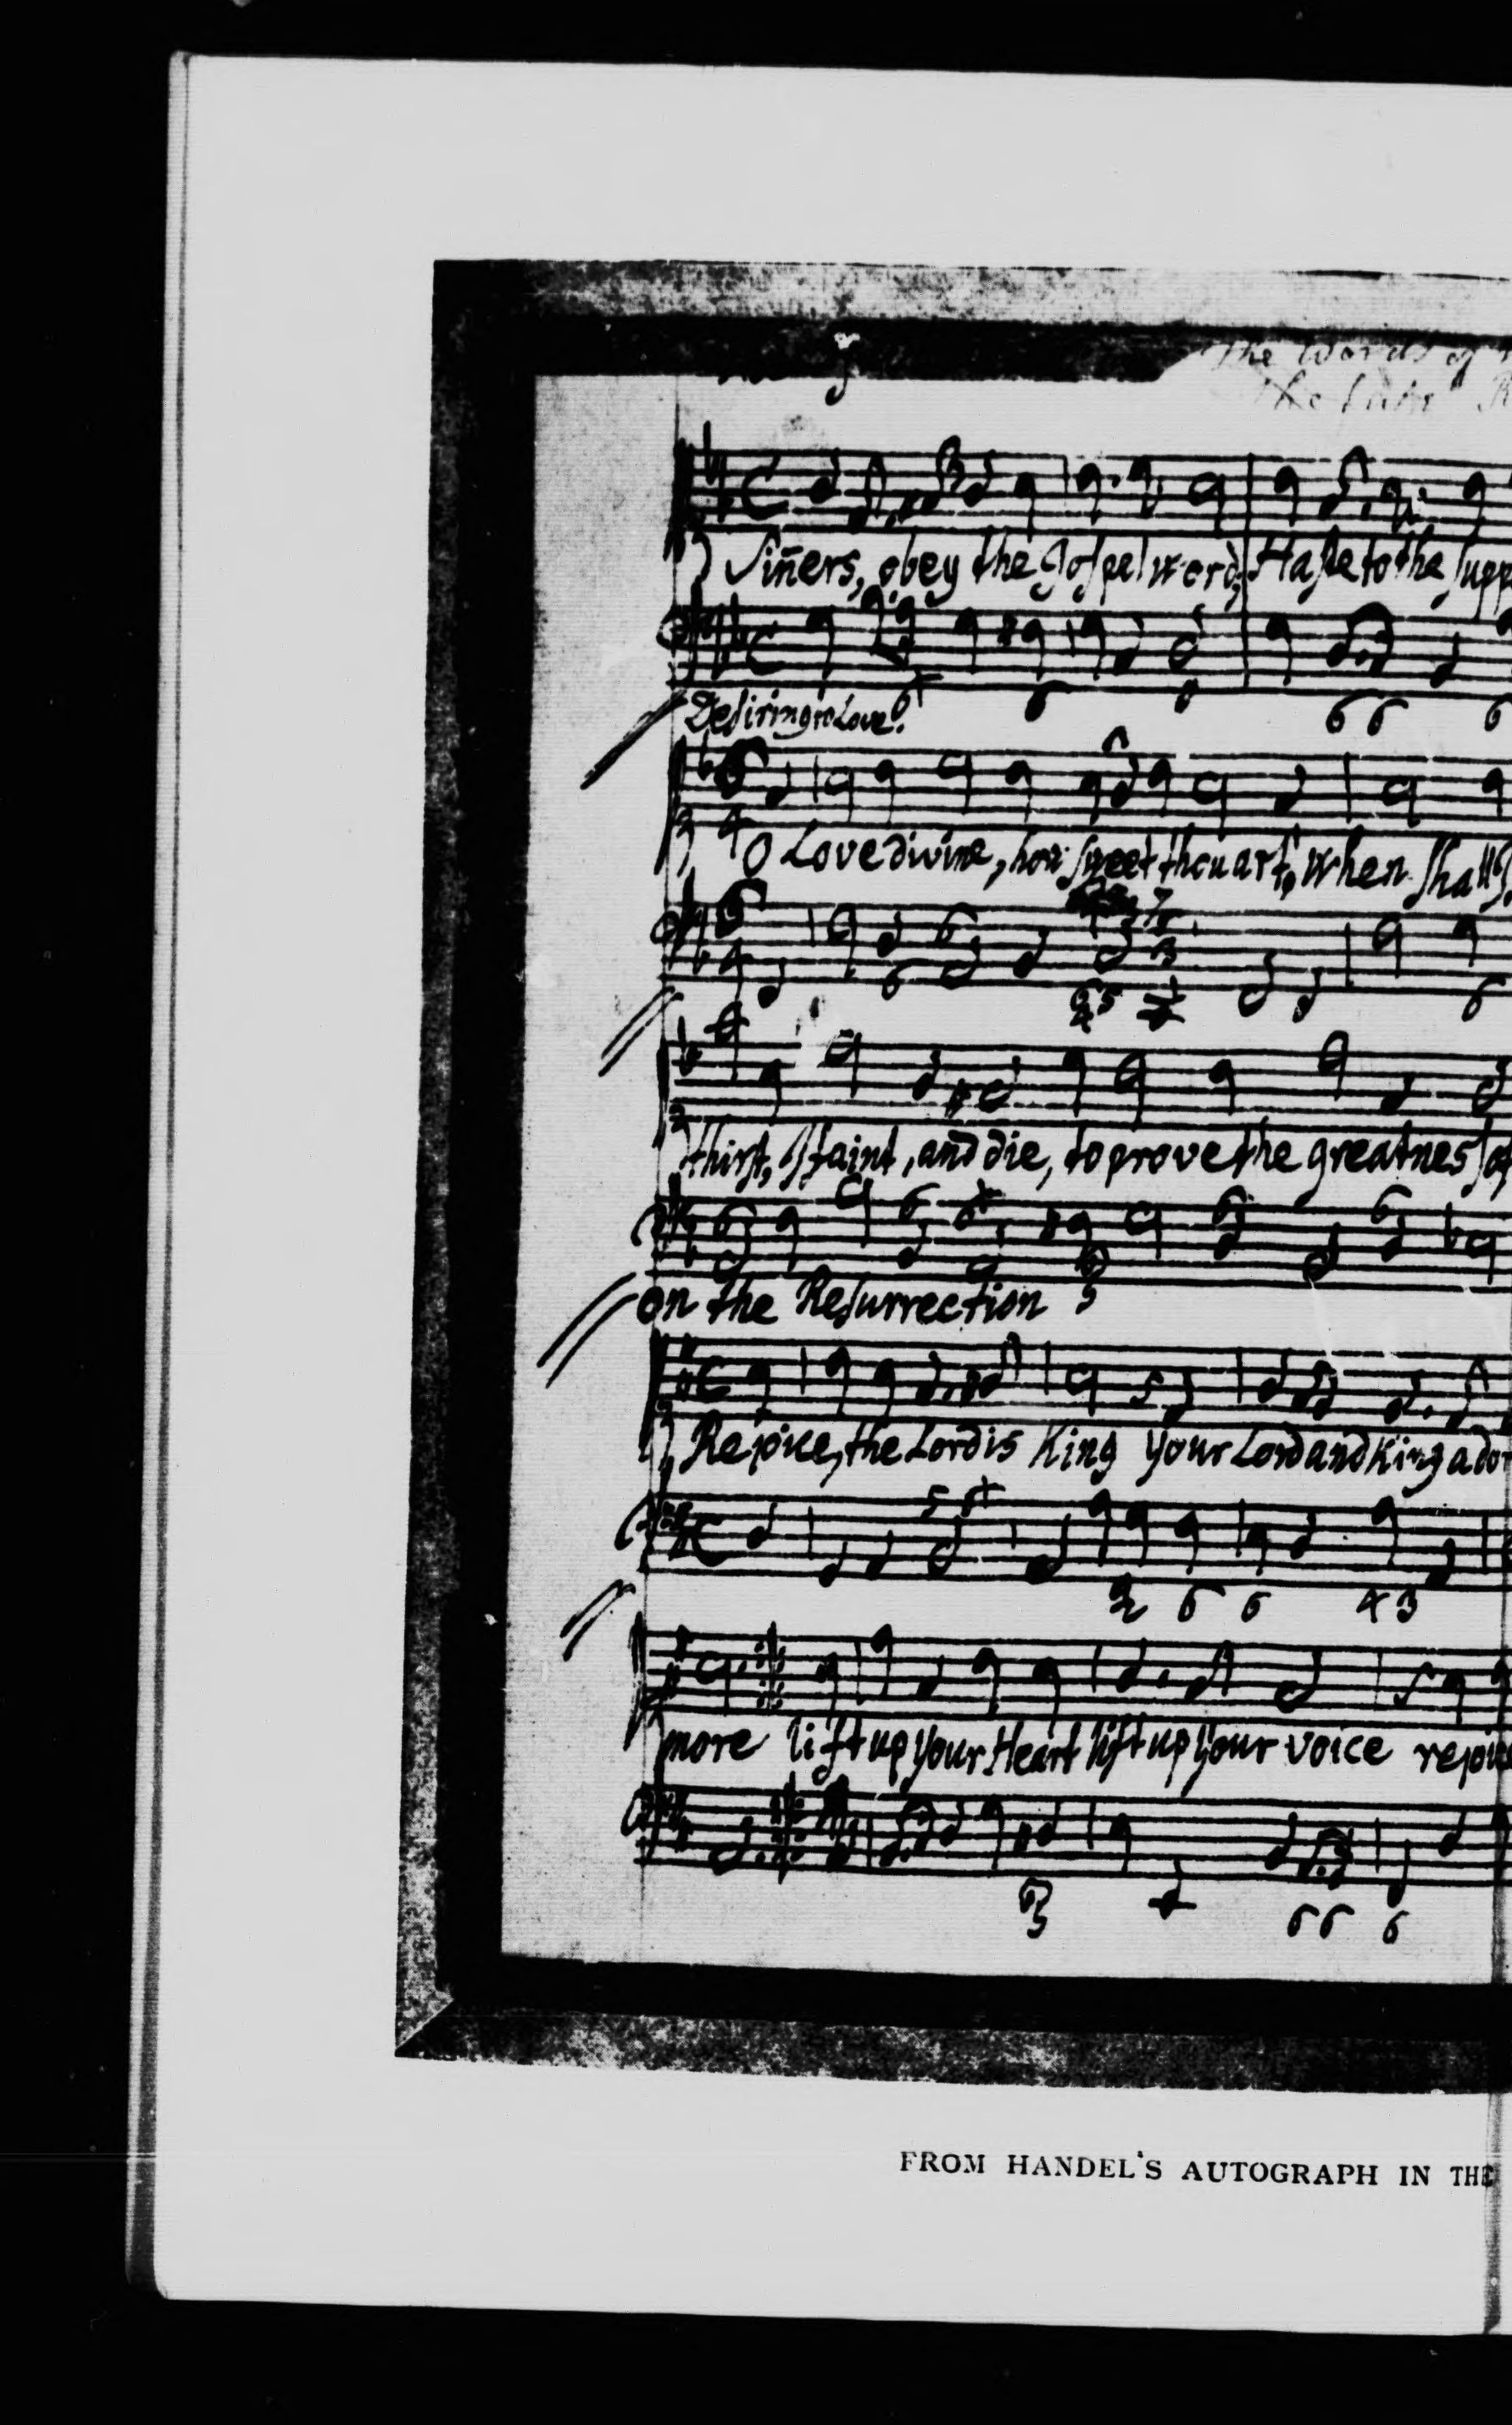 The Words of
the late R
Siñers, obey the Gospel word, Haste to the supp
Desiring to Love.
O Love divine, how sweet thou art, when shall
thirst, I faint, and die, to prove the greatness of
on the Resurrection
Rejoice, the Lord is King your Lord and King ador
more lift up your Heart lift up your voice rejoic
FROM HANDEL'S AUTOGRAPH IN THE